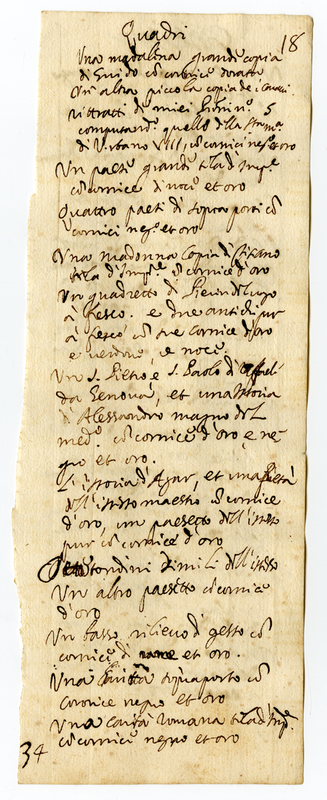 Quadri
18
Una madalena grande copia
di Guido cõ cornice dorata
Un altra piccola copia de i
ritratti di miei 5
computando quello della
di Urbano VIII, cõ cornici neg.e et oro
Un paese grande tela d'Imp.e
cõ cornice di noce et oro
Quattro paesi di sopra porti cõ
cornici neg.e et oro
Una madonna copia di Titiano
tela d'Imp.e cõ cornice d'oro
Un quadretto di
à fresco. e due antichi pur
à fresco cõ tre cornice d'oro
e verdine, e noce.
Un S. Pietro e S. Paolo di
da Genova, et una istoria
d'Alessandro magno del
med.o cõ cornice d'oro e ne-
gro et oro.
L'istoria d'Agar, et una Pietà
dell'istesso maestro cõ cornice
d'oro, un paesetto dell'istesso
pur cõ cornice d'oro
tondini simili dell'istesso
Un altro paesetto cõ cornice
d'oro
Un basso rilievo di gesso cõ
cornice di rame et oro.
Una sopraporto cõ
Cornice negro et oro
Una carità romana tela d'Imp.e
cõ cornice negro et oro
34